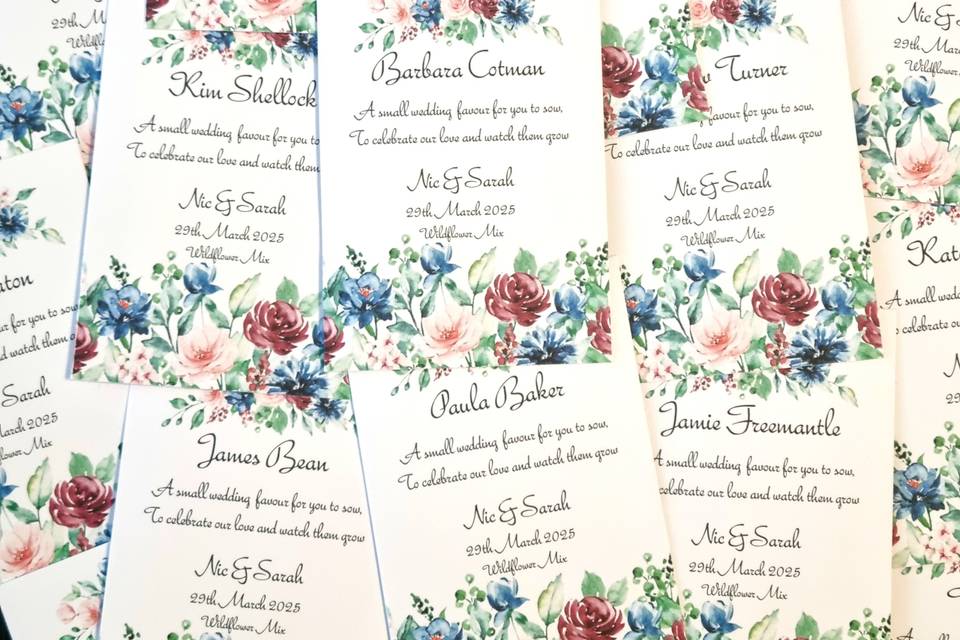 29th
Wildfl
Kim Shellock
A small wedding favour for you to
To celebrate our love and watch them
Nic & Sarah
29th March 2025
Wildflower Mix
Barbara Cotman
A small wedding favour for you to sow,
To celebrate our love and watch them grow
Nic & Sarah
29th March 2025
Wildflower Mix
u Turner
favour for you to sow,
To celebrate our love and watch them grow
Nic & Sarah
29th March 2025
Wildflower Mix
Nic
29th Marc
Wildflower
aton
our for you to sow
and watch them
Sarah
March 2025
Mix
James Bean
A small wedding favour for you to sow,
To celebrate our love and watch them grow
Nic & Sarah
29th March 2025
Wildflower Mix
Paula Baker
A small wedding favour for you to sow,
To celebrate our love and watch them grow
Nic & Sarah
29th March 2025
Wildflower Mix
Jamie Freemantle
A small wedding favour for you to sow,
celebrate our love and watch them grow
Nic & Sarah
29th March 2025
Wildflower Mix
Kat
A small wedd
celebrate our
Nic
29th M
Wildf